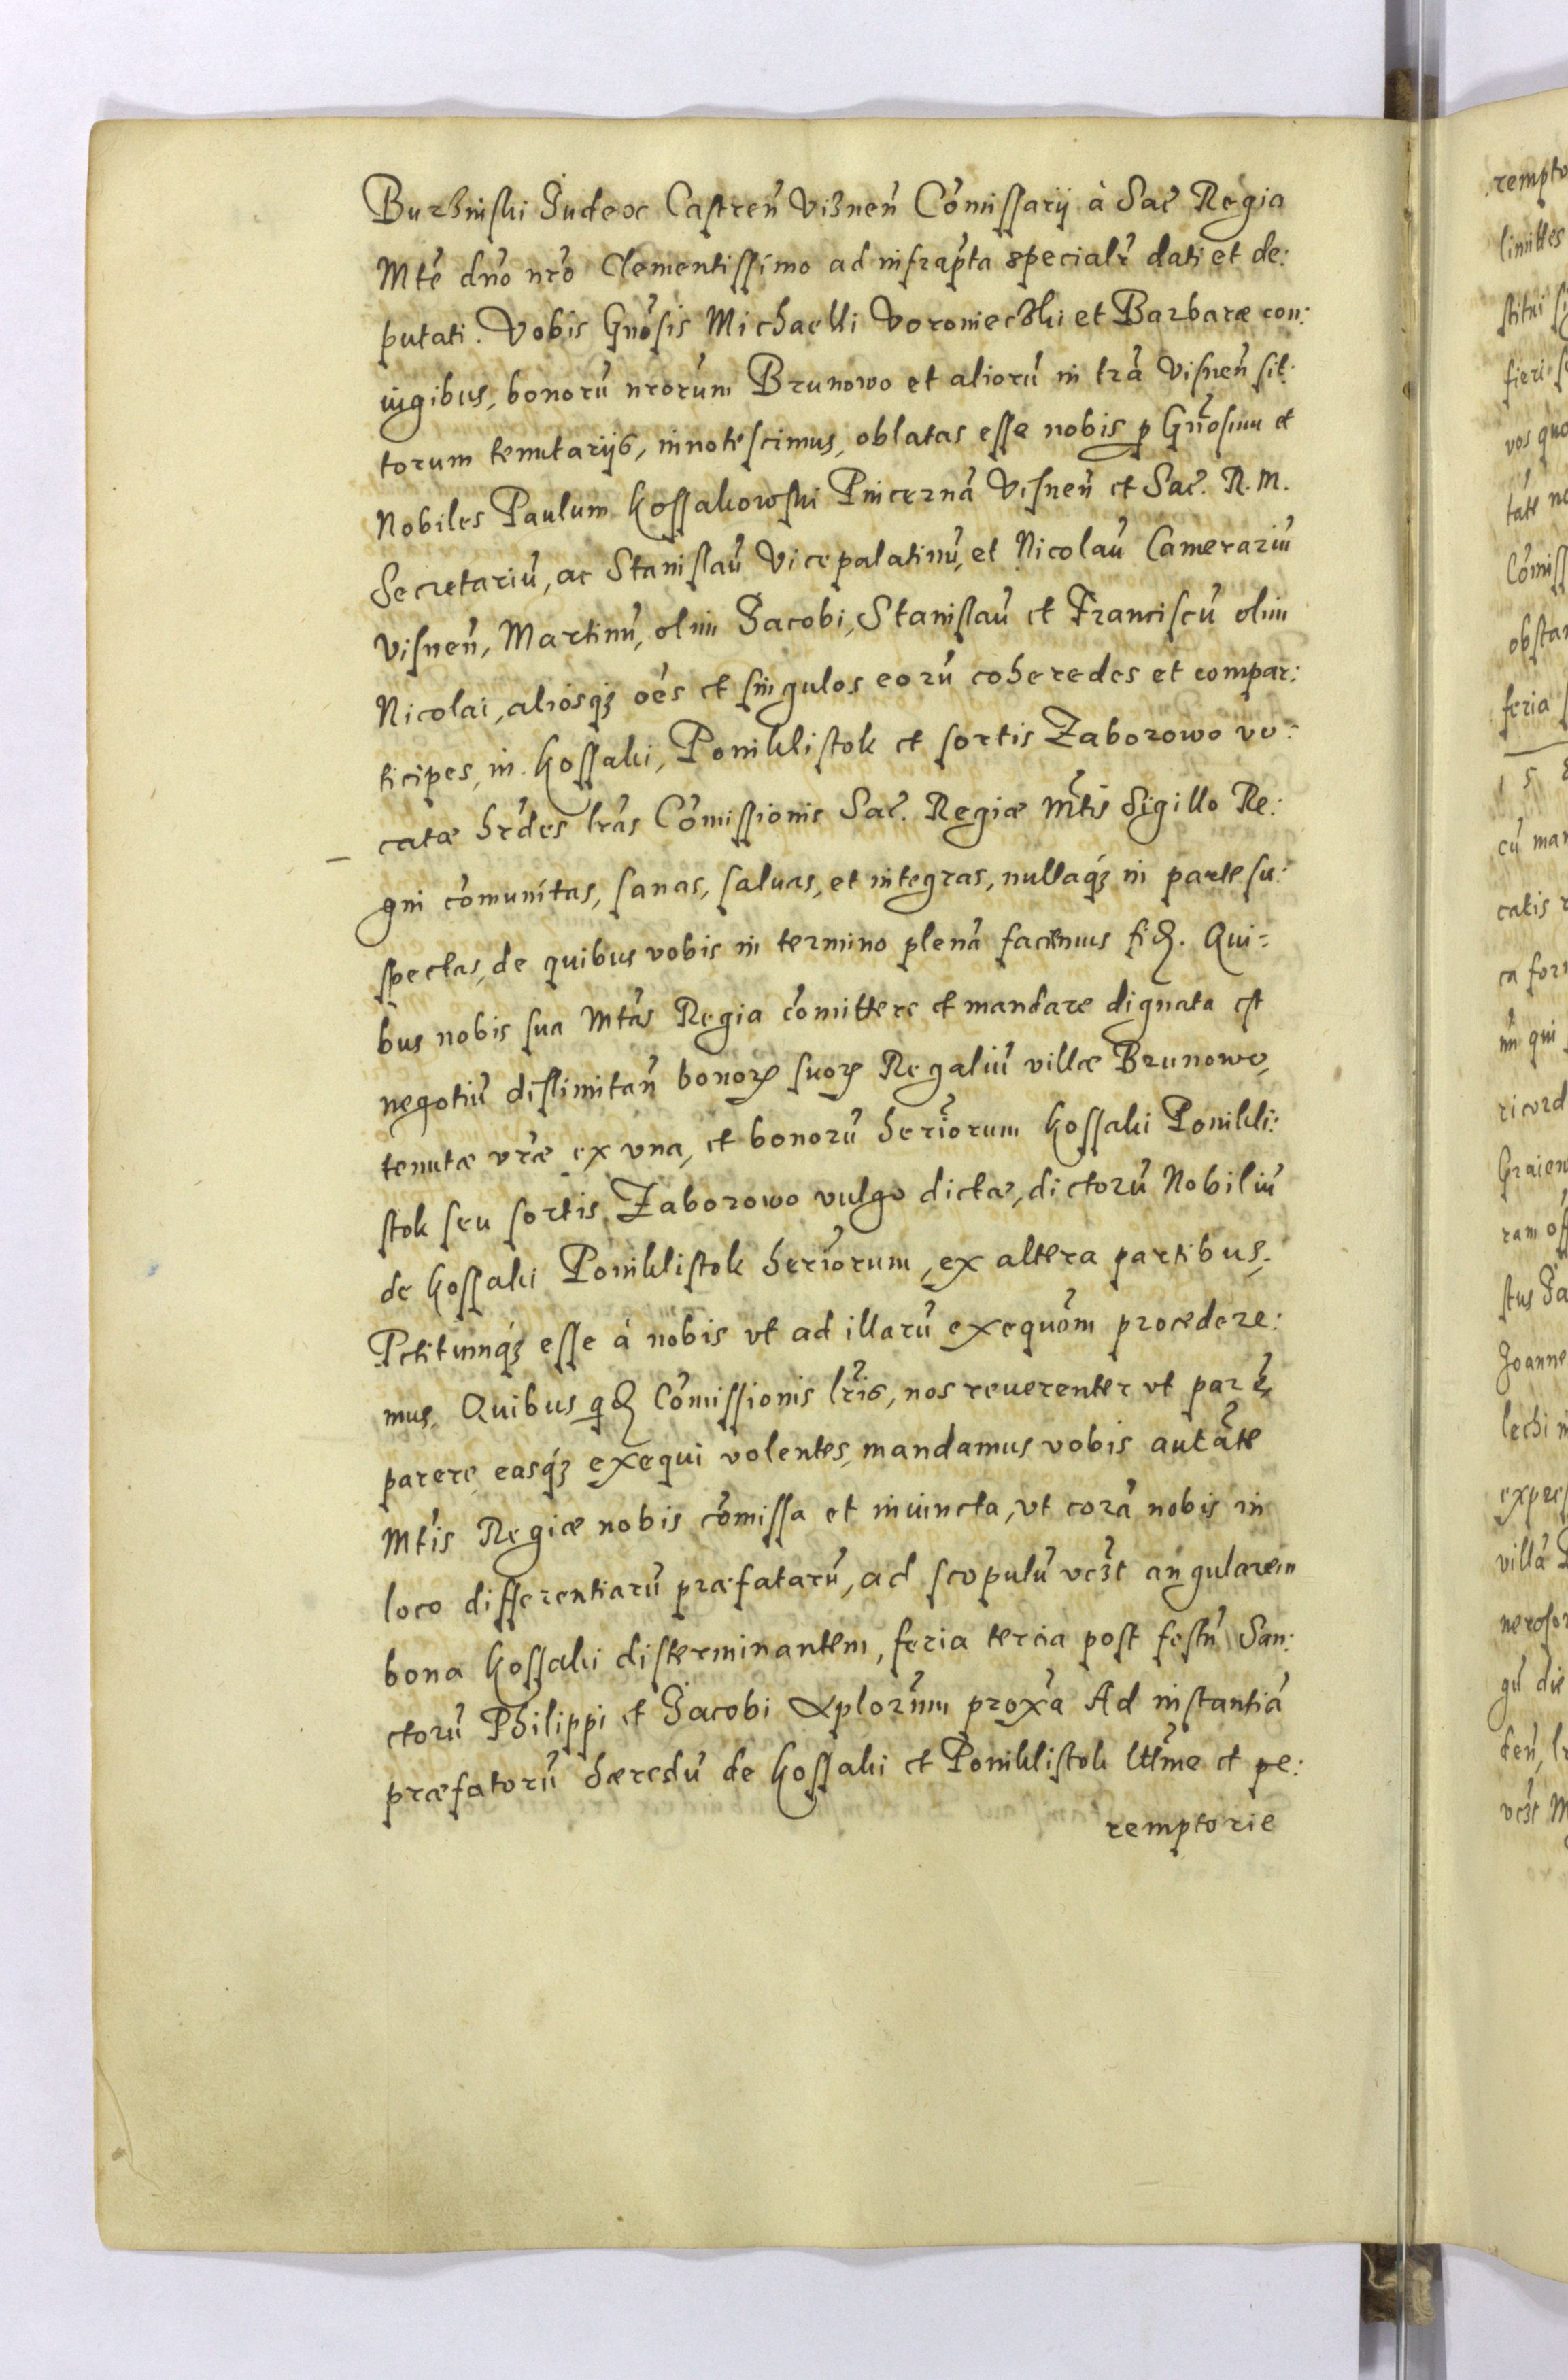 Burzinski Judex Castren̄ Viznen̄ Com̄issarij à Sac̄ Regia
Mtē dn̄o nr̄o Clementissimo ad infrapt̄a specialr̄ dati et de:
putati. Vobis Gn̄osis Michaelli Voronieczki et Barbaræ con:
iugibus, bonorū nrōrum Brunowo et aliorū in trā Visnen̄ sit:
torum tenutarijs, innotescimus, oblatas esse nobis p Gn̄osum et
Nobiles Paulum Kossakowski Pincernā Visnen̄ et Sac̄. R. M.
Secretariū, ac Stanislaū Vicepalatinū, et Nicolaū Camerariū
Visnen̄, Martinū, olim Jacobi, Stanislaū et Franciscū olim
Nicolai, aliosqꝫ oēs et singulos eorū coheredes et compar:
ticipes, in Kossaki, Poniklistok et sortis Zaborowo vo:
catæ hrd̄es lrās Com̄issionis Sac̄. Regiæ Mt̄is Sigillo Re:
gni com̄unitas, sanas, saluas, et integras, nullaqꝫ in parte su:
spectas, de quibus vobis in termino plenā faciemus fid. Qui=
bus nobis sua Mtās Regia com̄ittere et mandare dignata est
negotiū dislimitan̄ bonorꝝ suorꝝ Regaliū villæ Brunowo,
tenutæ vrǣ ex vna, et bonorū heriōrum Kossaki Ponikli:
stok seu sortis Zaborowo vulgo dictæ, dictorū Nobiliū
de Kossaki Poniklistok heriōrum, ex altera partibus.
Petitumqꝫ esse à nobis vt ad illarū exequōm procedere:
mus. Quibus qd Com̄issionis lrīs, nos reuerenter vt par ē,
parere, easqꝫ exequi volentes, mandamus vobis autāte
Mt̄is Regiæ nobis com̄issa et iniuncta, vt corā nobis in
loco differentiarū præfatarū, ad scopulū vcꝫt angularem
bona Kossaki disterminantem, feria tercia post festū San:
ctorū Philippi et Jacobi Aplorūm prox̄a Ad instantiā
præfatorū hæredū de Kossaki et Poniklistok ltīme et pe:
remptorie